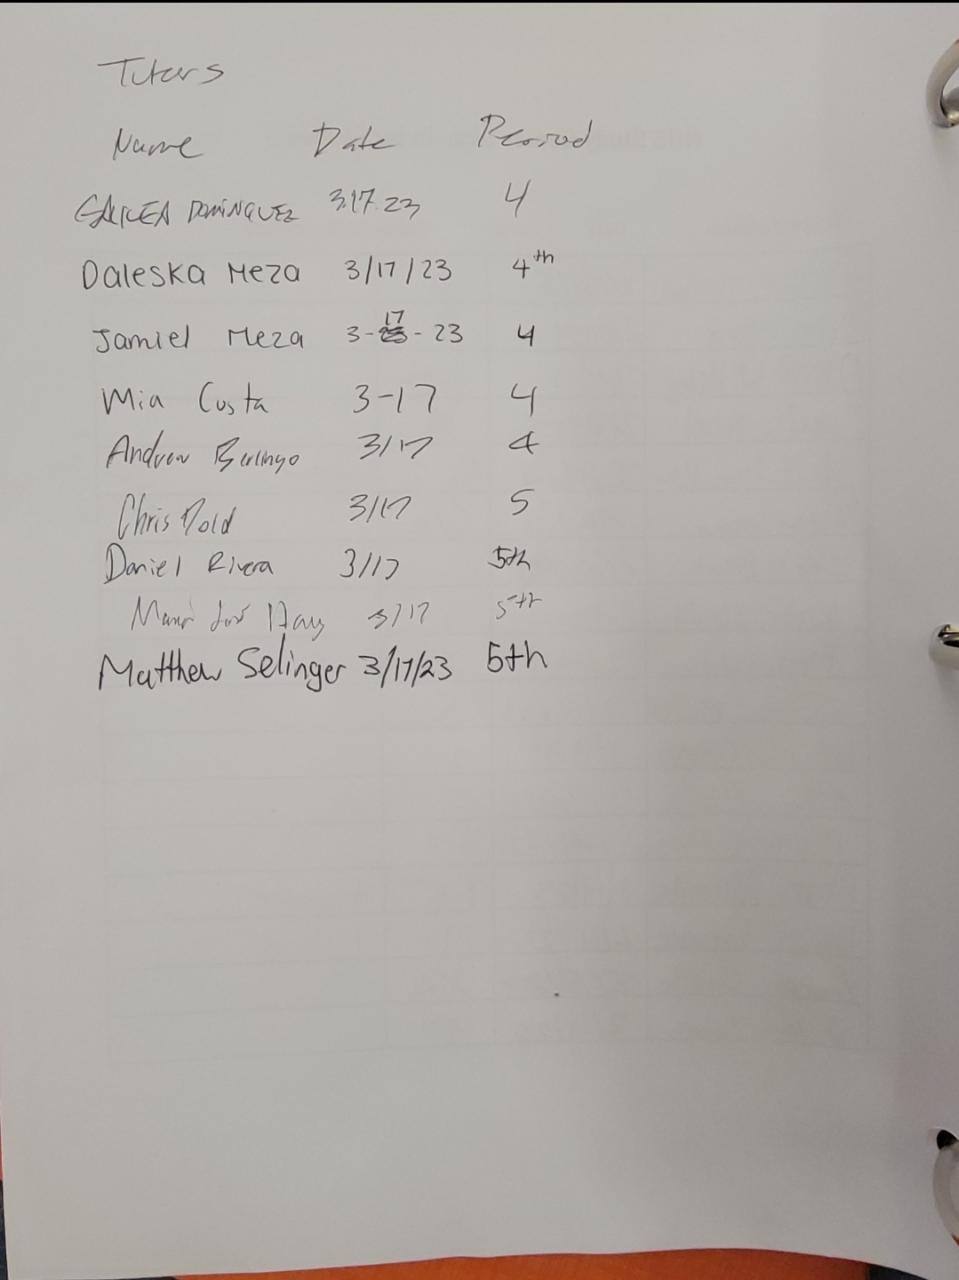 Tutors
Name Date Period
DOMINGUEZ 3.17.23 4
Daleska Meza 3/17/23 4th
Jamiel Meza 3-17-23 4
Mia Costa 3-17 4
Andrew 3/17 4
Chris Dold 3/17 5
Daniel Rivera 3/17 5th
3/17 5th
Matthew Selinger 3/17/23 5th